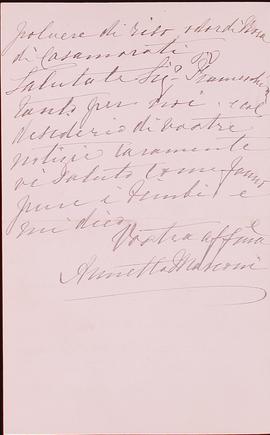 polvere di riso odor di Rosa
di Casamorati
Salutate Sigr
tanto per Noi. e col
desiderio di vostre
notizie caramente
vi saluto come fanno
pure i bimbi e
mi dico
Vostra affma
Annetta Marconi